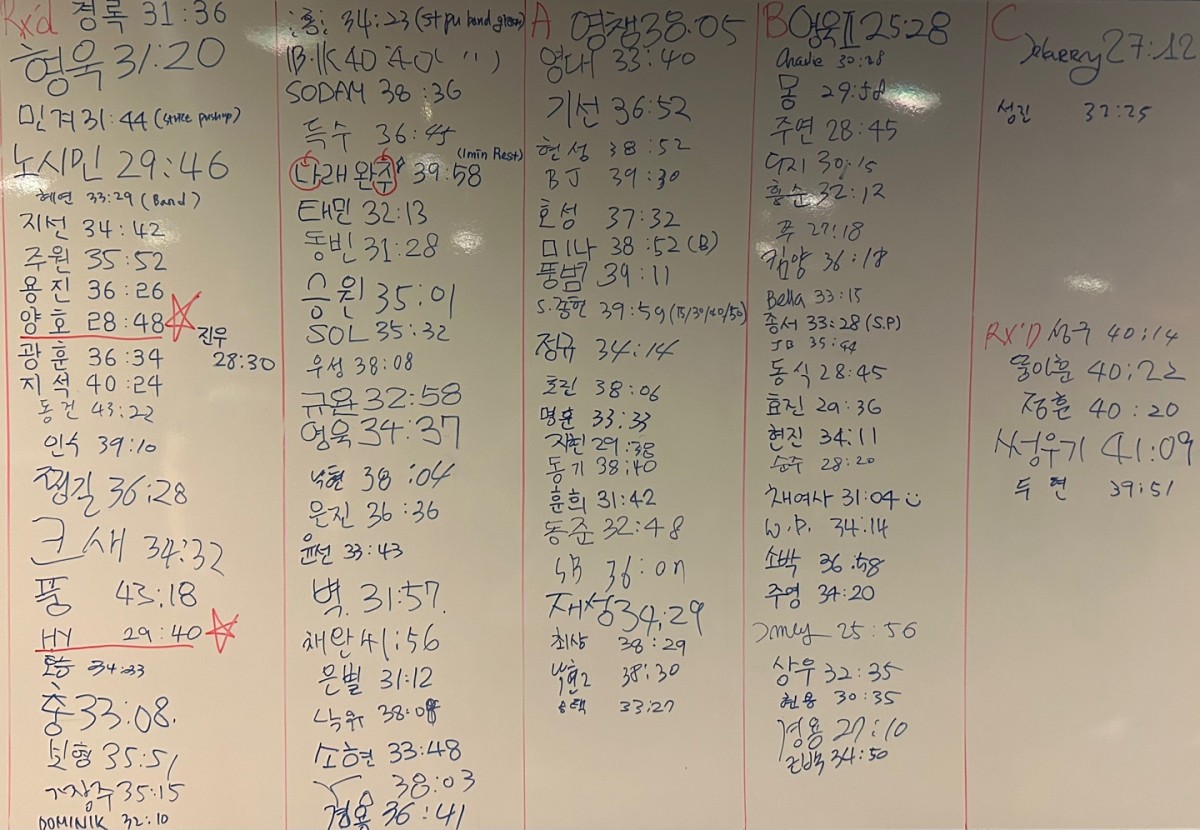 Rx'd 경록 31:36
형욱 31:20
민겨 31:44 (strict pushup)
노시민 29:46
혜연 33:29 (Band)
지선 34:42
주원 35:52
용진 36:26
양호 28:48
진우
28:30
광훈 36:34
지석 40:24
동건 43:22
인수 39:10
쨍길 36:28
크새 34:32
품 43:18
HY 29:40
34:33
충 33:08.
보형 35:51
가장주 35:15
DOMINIK 32:10
34:23 (st pu band green)
B.IK 40:40 (〃)
SODAM 38:36
득수 36:45
(1min Rest)
나래완주 39:58
태민 32:13
동빈 31:28
승원 35:01
SOL 35:32
우성 38:08
규완 32:58
영욱 34:37
낙현 38:04
은진 36:36
윤선 33:43
벽. 31:57.
채란 41:56
은별 31:12
낙위 38:08
소현 33:48
38:03
경용 36:41
A 영챔 38:05
영대 33:40
기선 36:52
현성 38:52
BJ 39:30
호성 37:32
미나 38:52 (B)
풍범 39:11
S.종헌 39:59 (15/30/40/50)
정규 34:14
효린 38:06
명훈 33:33
지현 29:38
동기 38:40
훈희 31:42
동준 32:48
SB 36:07
재성 34:29
최상 38:29
낙현2 38:30
33:27
B 영욱II 25:28
Charlie 30:28
몽 29:58
주연 28:45
다지 30:15
흥순 32:12
쭈 27:18
킴양 36:18
Bella 33:15
종서 33:28 (S.P)
JB 35:44
동식 28:45
효진 29:36
현진 34:11
순주 28:20
채여사 31:04
W.P. 34:14
소박 36:58
주영 34:20
25:56
상우 32:35
헌용 30:35
경용 27:10
34:50
C 27:12
성진 32:25
RX'D 성구 40:14
몽이훈 40:22
정훈 40:20
써성우기 41:09
두연 39:51